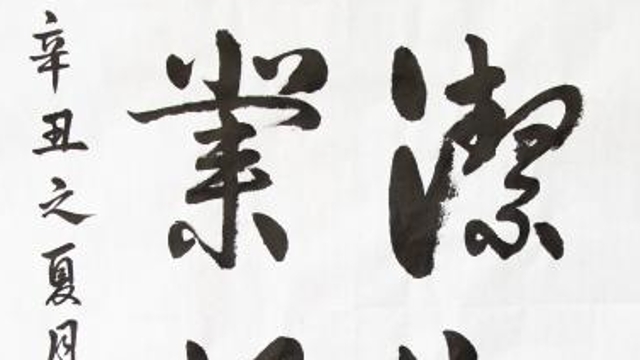 潔
業
辛丑之夏月